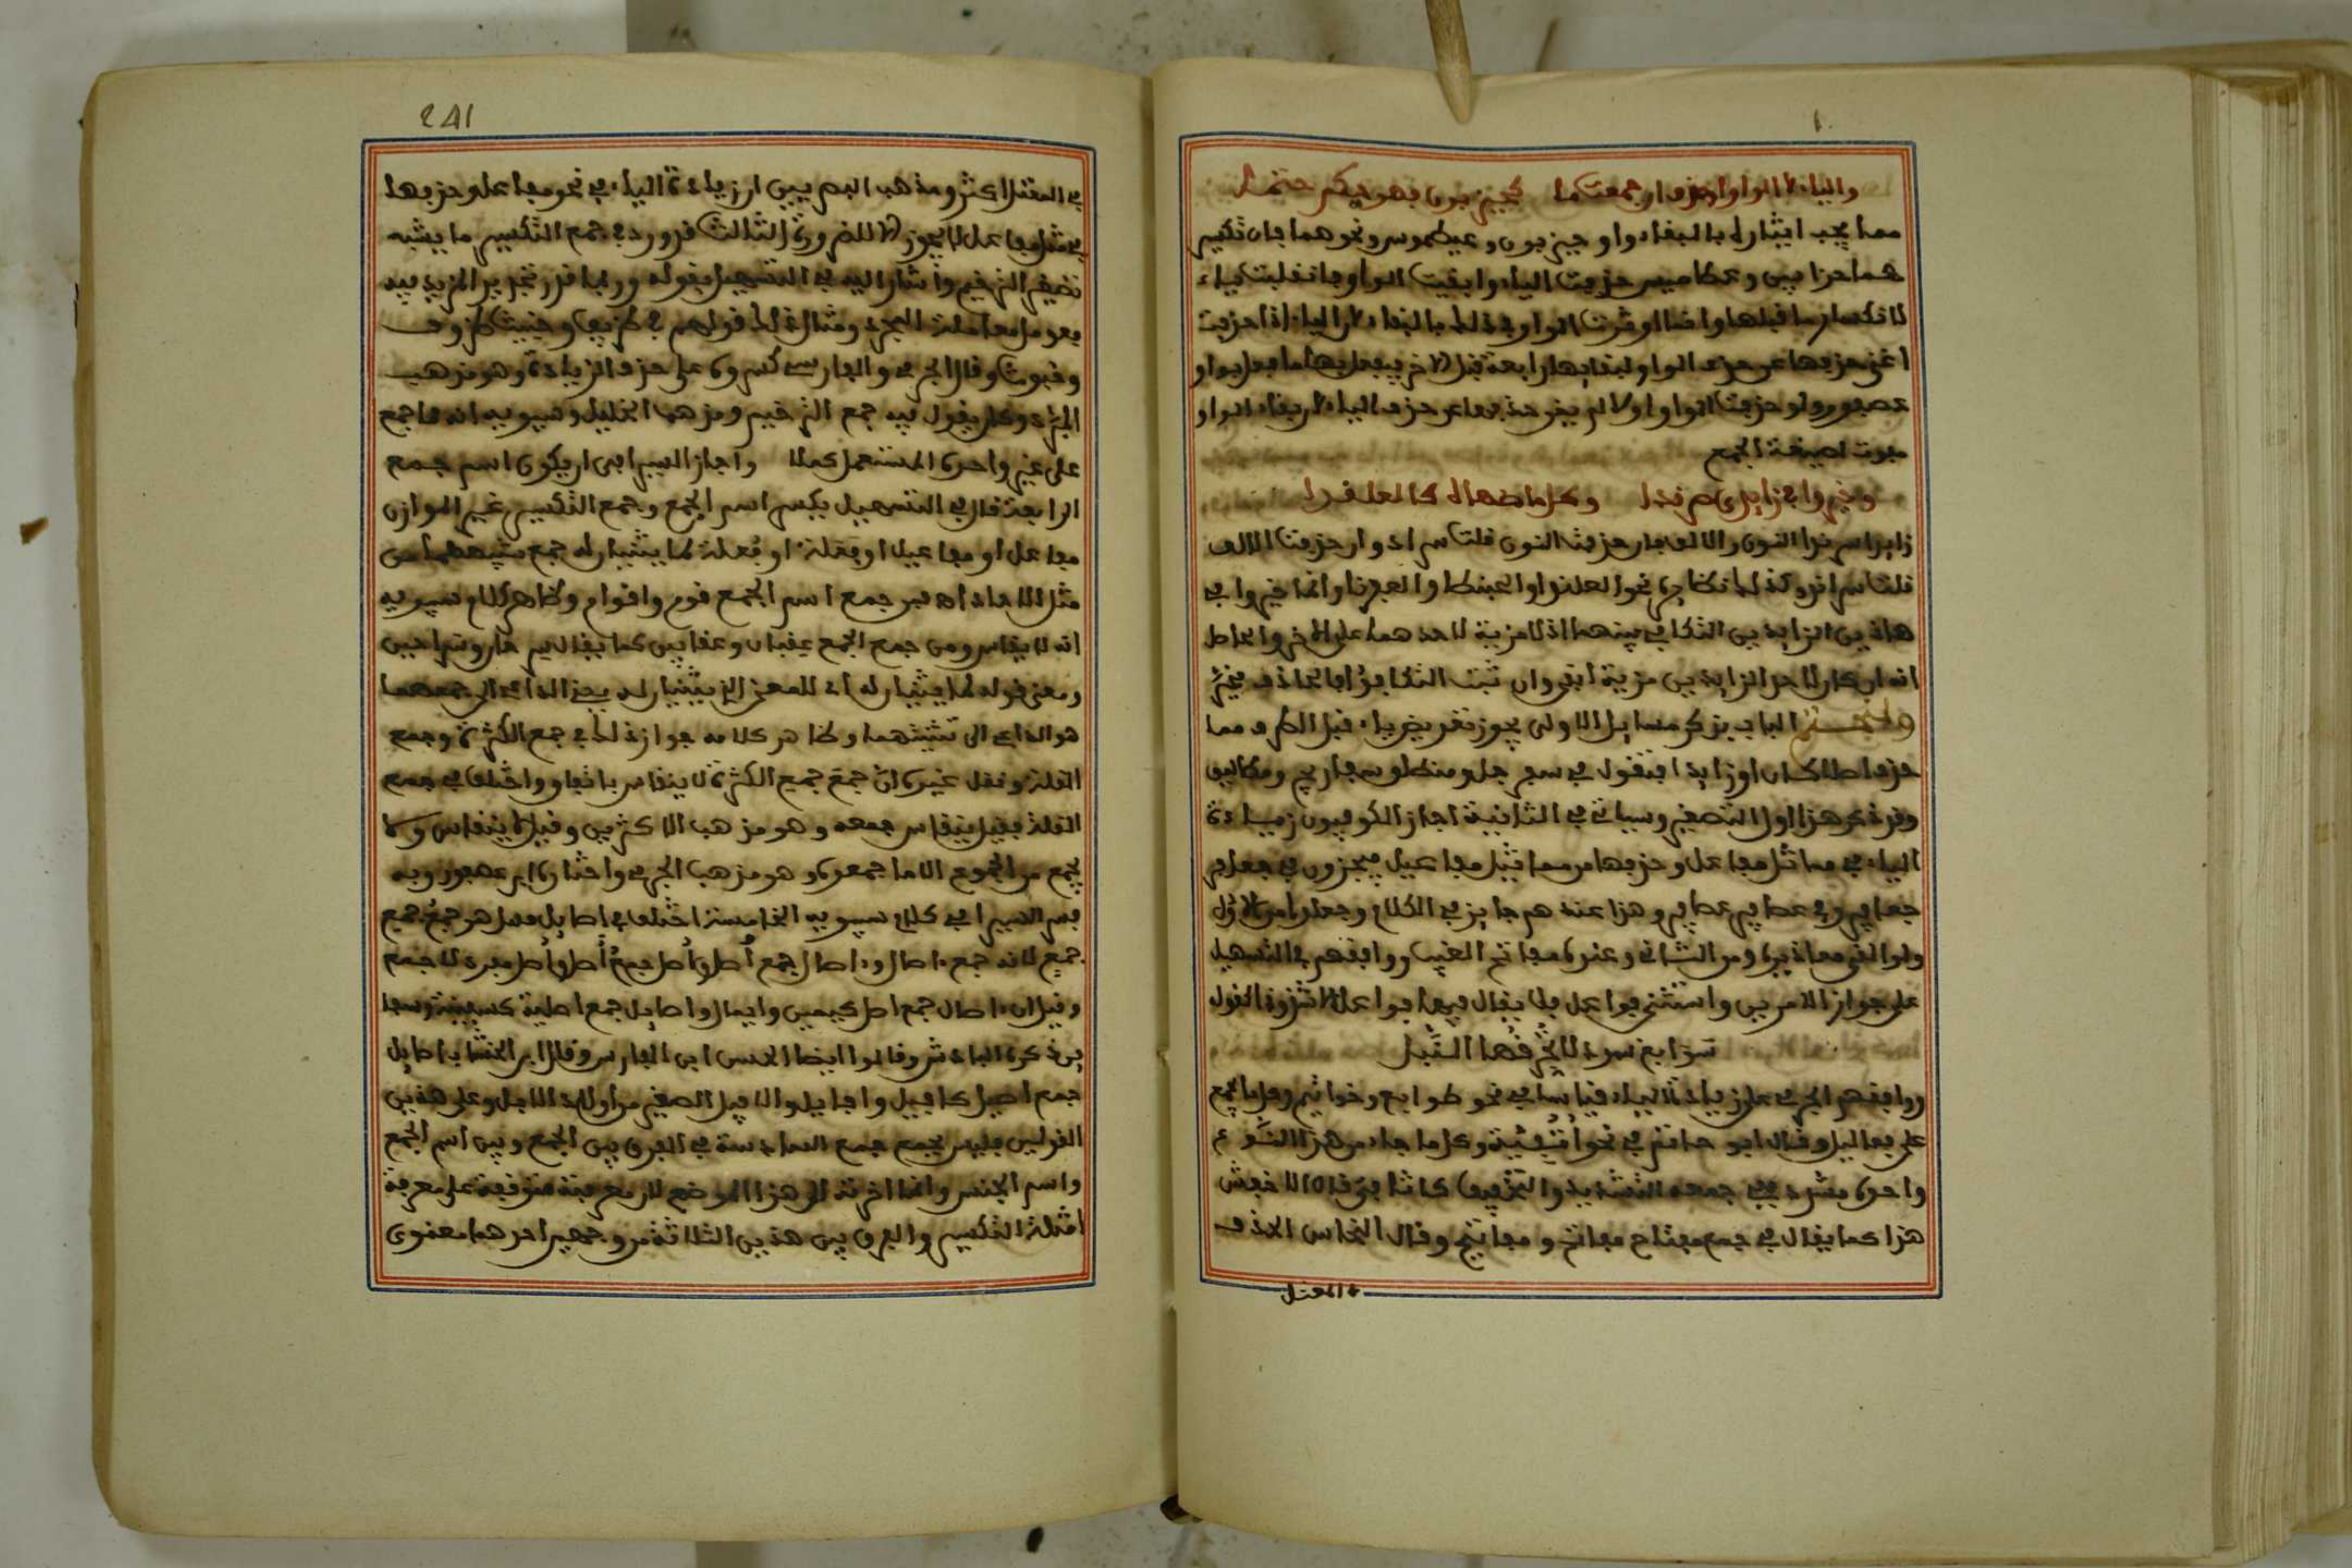 والياء لا الواو احذف ان جمعت ما كحيزبون فهو حكم حتما
مما يجب ايثاره بالبقاء واو حيزبون وعيطموس ونحوهما فان تكسير
هما حزابين وعطاميس حذفت الياء وابقيت الواو فانقلبت ياء
لانكسار ما قبلها وانما اوثرت الواو في ذلك بالبقاء لان الياء اذا حذفت
اغنى حذفها عن حذف الواو لبقايها رابعة قبل الاخر فيفعل بها ما فعل بواو
عصفور ولو حذفت الواو اولا لم يغن حذفها عن حذف الياء لان بقاء الواو
مفوت لصيغة الجمع
وخيروا في زايدي سرندا وكل ما ضاهاه كالعلندا
زايدا سرندا النون والالف فان حذفت النون قلت سراد وان حذفت الالف
قلت سراند وكذلك ما ضاهى نحو العلندا والحبنطا والعفرنا وانما خيروا في
هاذين الزايدين لتكافيهما اذ لا مزية لاحدهما على الاخر والحاصل
انه ان كان لاحد الزايدين مزية ابقي وان ثبت التكافؤ فالحاذف مخير
ولنختم الباب بذكر مسايل الاولى يجوز تعويض ياء قبل الطرف مما
حذف اصلا كان او زايدا فتقول في سفرجل ومنطلق سفاريج ومطاليق
وقد ذكر هذا اول التصغير وسياتي الثانية اجاز الكوفيون زيادة
الياء في مماثل مفاعل وحذفها من مماثل مفاعيل فيجيزون في جعافر
جعافير وفي عصافير عصافر وهذا عندهم جايز في الكلام وجعلوا من الاول
ولو القى معاذيره ومن الثاني وعنده مفاتح الغيب ووافقهم في التسهيل
على جواز الامرين واستثنى فواعل فلا يقال فيه فواعيل الا شذوذا كقول
سوابيغ سود لا يخرقها النبل
ووافقهم الجرمي على زيادة الياء قياسا في نحو طوابع وخواتم وهل ما يجمع
على فعاليل وقال ابو حاتم في نحو اثفية وكل ما جاء من هذا النوع
واحده مشدد ففي جمعه التشديد والتخفيف كاثافي وقال الاخفش
هذا كما يقال في جمع مفتاح مفاتح ومفاتيح وقال النحاس الحذف
في المعتل
241
في المعتل اكثر ومذهب البصريين ان زيادة الياء في نحو مفاعل وحذفها
في مثل مفاعيل لا يجوز الا للضرورة الثالث قد ورد في جمع التكسير ما يشبه
تصغير الترخيم واشار اليه في التسهيل بقوله وربما قدر تجريد المزيد فيه
فعومل معاملة المجرد ومثال ذلك قولهم في ظريف وخبيث ظروف
وخبوث وقال الجرمي والفارسي كسروه على حذف الزيادة وهو مذهب
المبرد وكان يقول فيه جمع الترخيم ومذهب الخليل وسيبويه انه مما جمع
على غير واحده المستعمل كملا واجاز السيرافي ان يكون اسم جمع
الرابعة قال في التسهيل يكسر اسم الجمع وجمع التكسير غير الموازن
مفاعل او مفاعيل او فعلة او فعلة لما يثنيان له جمع شبيههما من
مثل الاحاد اه فمن جمع اسم الجمع قوم واقوام وظاهر كلام سيبويه
انه لا يقاس ومن جمع الجمع عقبان وعقابين كما يقال سرحان وسراحين
ومعنى قوله لما يثنيان له اي للمعنى الذي يثنيان له يعني الداعي الى جمعهما
هو الداعي الى تثنيتهما وظاهر كلامه جواز ذلك في جمع الكثرة وجمع
القلة ونقل غيره ان جمع جمع الكثرة لا ينقاس باتفاق واختلف في جمع
القلة فقيل ينقاس جمعه وهو مذهب الاكثرين وقيل لا ينقاس ولا
يجمع من الجموع الا ما جمعوه وهو مذهب الجرمي واختاره ابن عصفور وبه
فسر السيرافي كلام سيبويه الخامسة اختلف في اصايل فقيل هو جمع جمع
جمع لانه جمع ءاصال وءاصال جمع أصل وأصل جمع أصيل وأصل مفرد لا جمع
وقيل ان ءاصال جمع اصيل كيمين وايمان واصايل جمع اصيلة كسفينة وسفا
ين ذكره الباذش وقالوا ايضا الحسن ابي الفارس وقال ابن الخشاب اصايل
جمع اصيل كافيل وافايل والافيل الصغير من اولاد الابل وعلى هذين
القولين فليس بجمع جمع السادسة في الفرق بين الجمع وبين اسم الجمع
واسم الجنس وانما اخرته الى هذا الموضع لان معرفته متوقفة على معرفة
امثلة التكسير والفرق بين هذين الثلاثة من وجهين احدهما معنوي